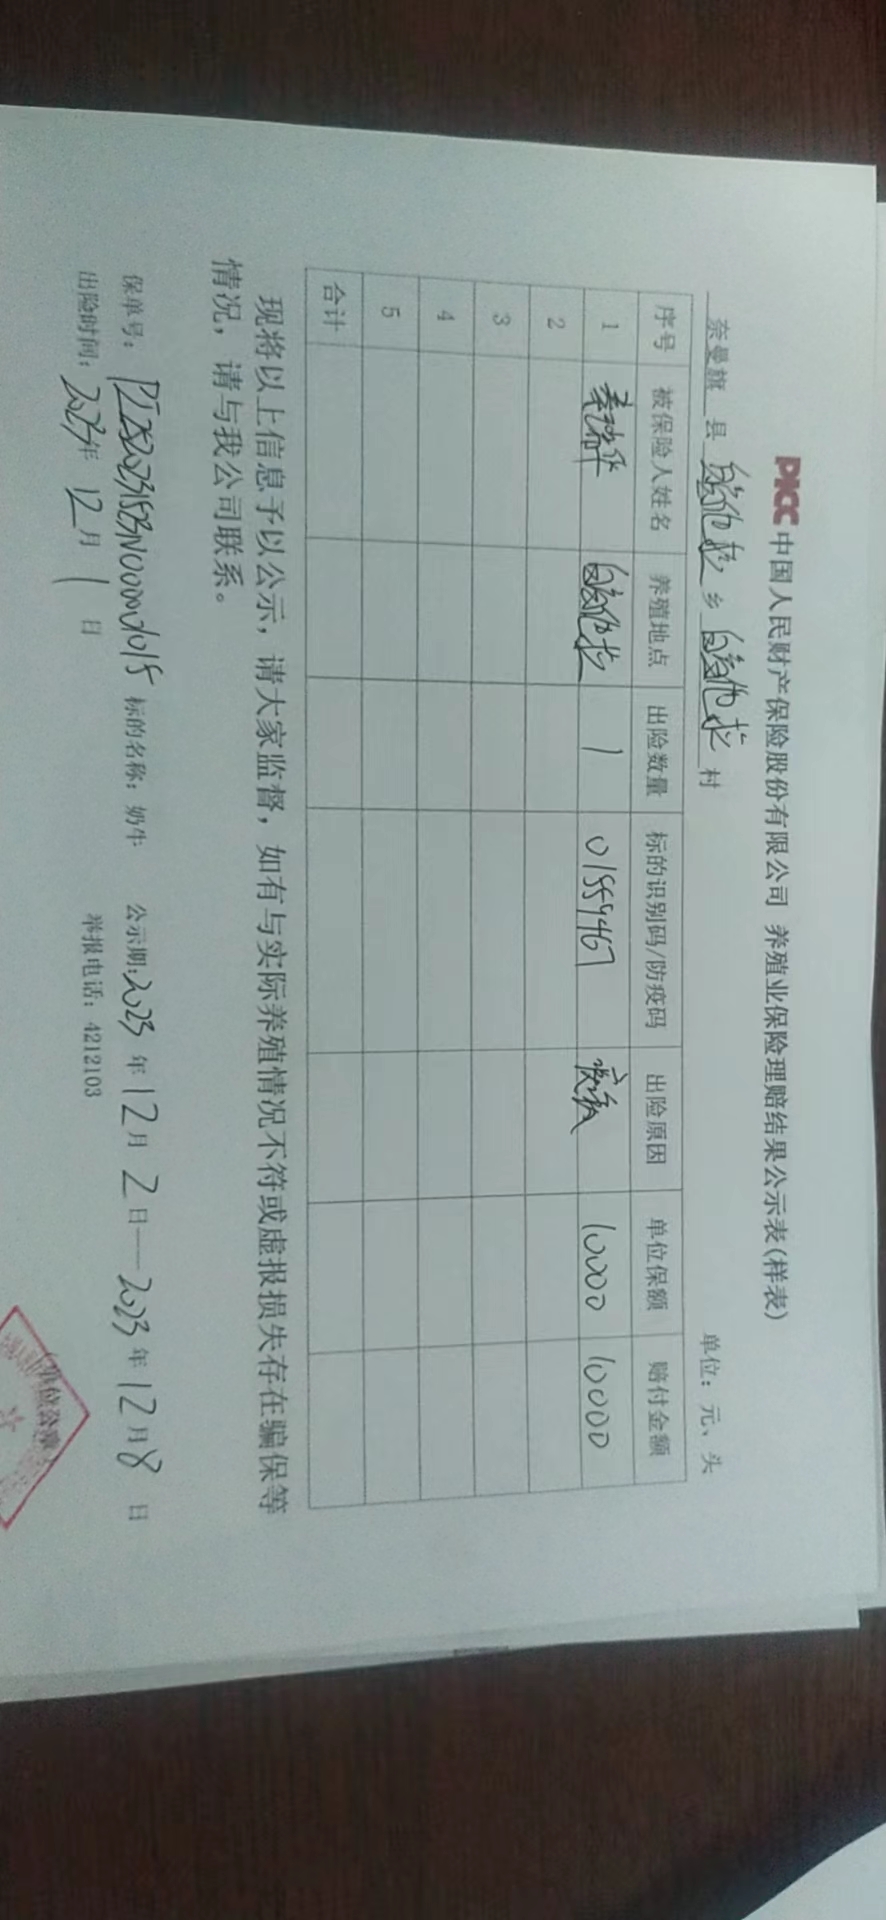 PICC 中国人民财产保险股份有限公司 养殖业保险理赔结果公示表(样表)
奈曼旗 县 乡 村 单位：元、头
序号 被保险人姓名 养殖地点 出险数量 标的识别码/防疫码 出险原因 单位保额 赔付金额
1 1 01559467 10000 10000
2
3
4
5
合计
现将以上信息予以公示，请大家监督，如有与实际养殖情况不符或虚报损失存在骗保等
情况，请与我公司联系。
保单号： 标的名称：奶牛 公示期：2023年12月2日—2023年12月8日
出险时间：2023年12月1日 举报电话：4212103
(单位公章)